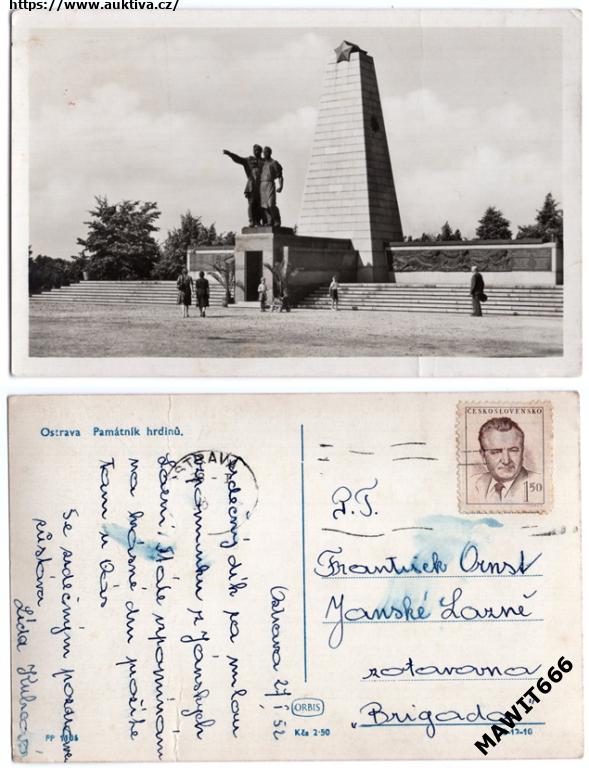 https://www.auktiva.cz/
Ostrava Památník hrdinů.
OSTRAVA
ČESKOSLOVENSKO
1.50
Ostrava 27/I 52
Srdečný dík za milou
vzpomínku z Jánských
Lázní. Stále vzpomínám
na krásné dni prožité
tam u Vás
Se srdečným pozdravem
zůstává
Lída
P.T.
František Ornst
Janské Lazně
zotavovna
„Brigada"
ORBIS
Kčs 2·50
PP
12-10
MAWIT666